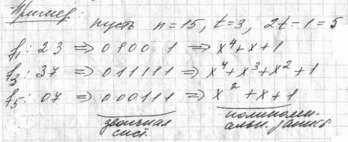 Пример:
пусть n=15, t=3, 2t-1=5
f₁: 23 ⇒ 0100 1 ⇒ x⁴+x+1
f₃: 37 ⇒ 011111 ⇒ x⁴+x³+x²+1
f₅: 07 ⇒ 000111 ⇒ x²+x+1
двоичная сист.
полиномиальн.